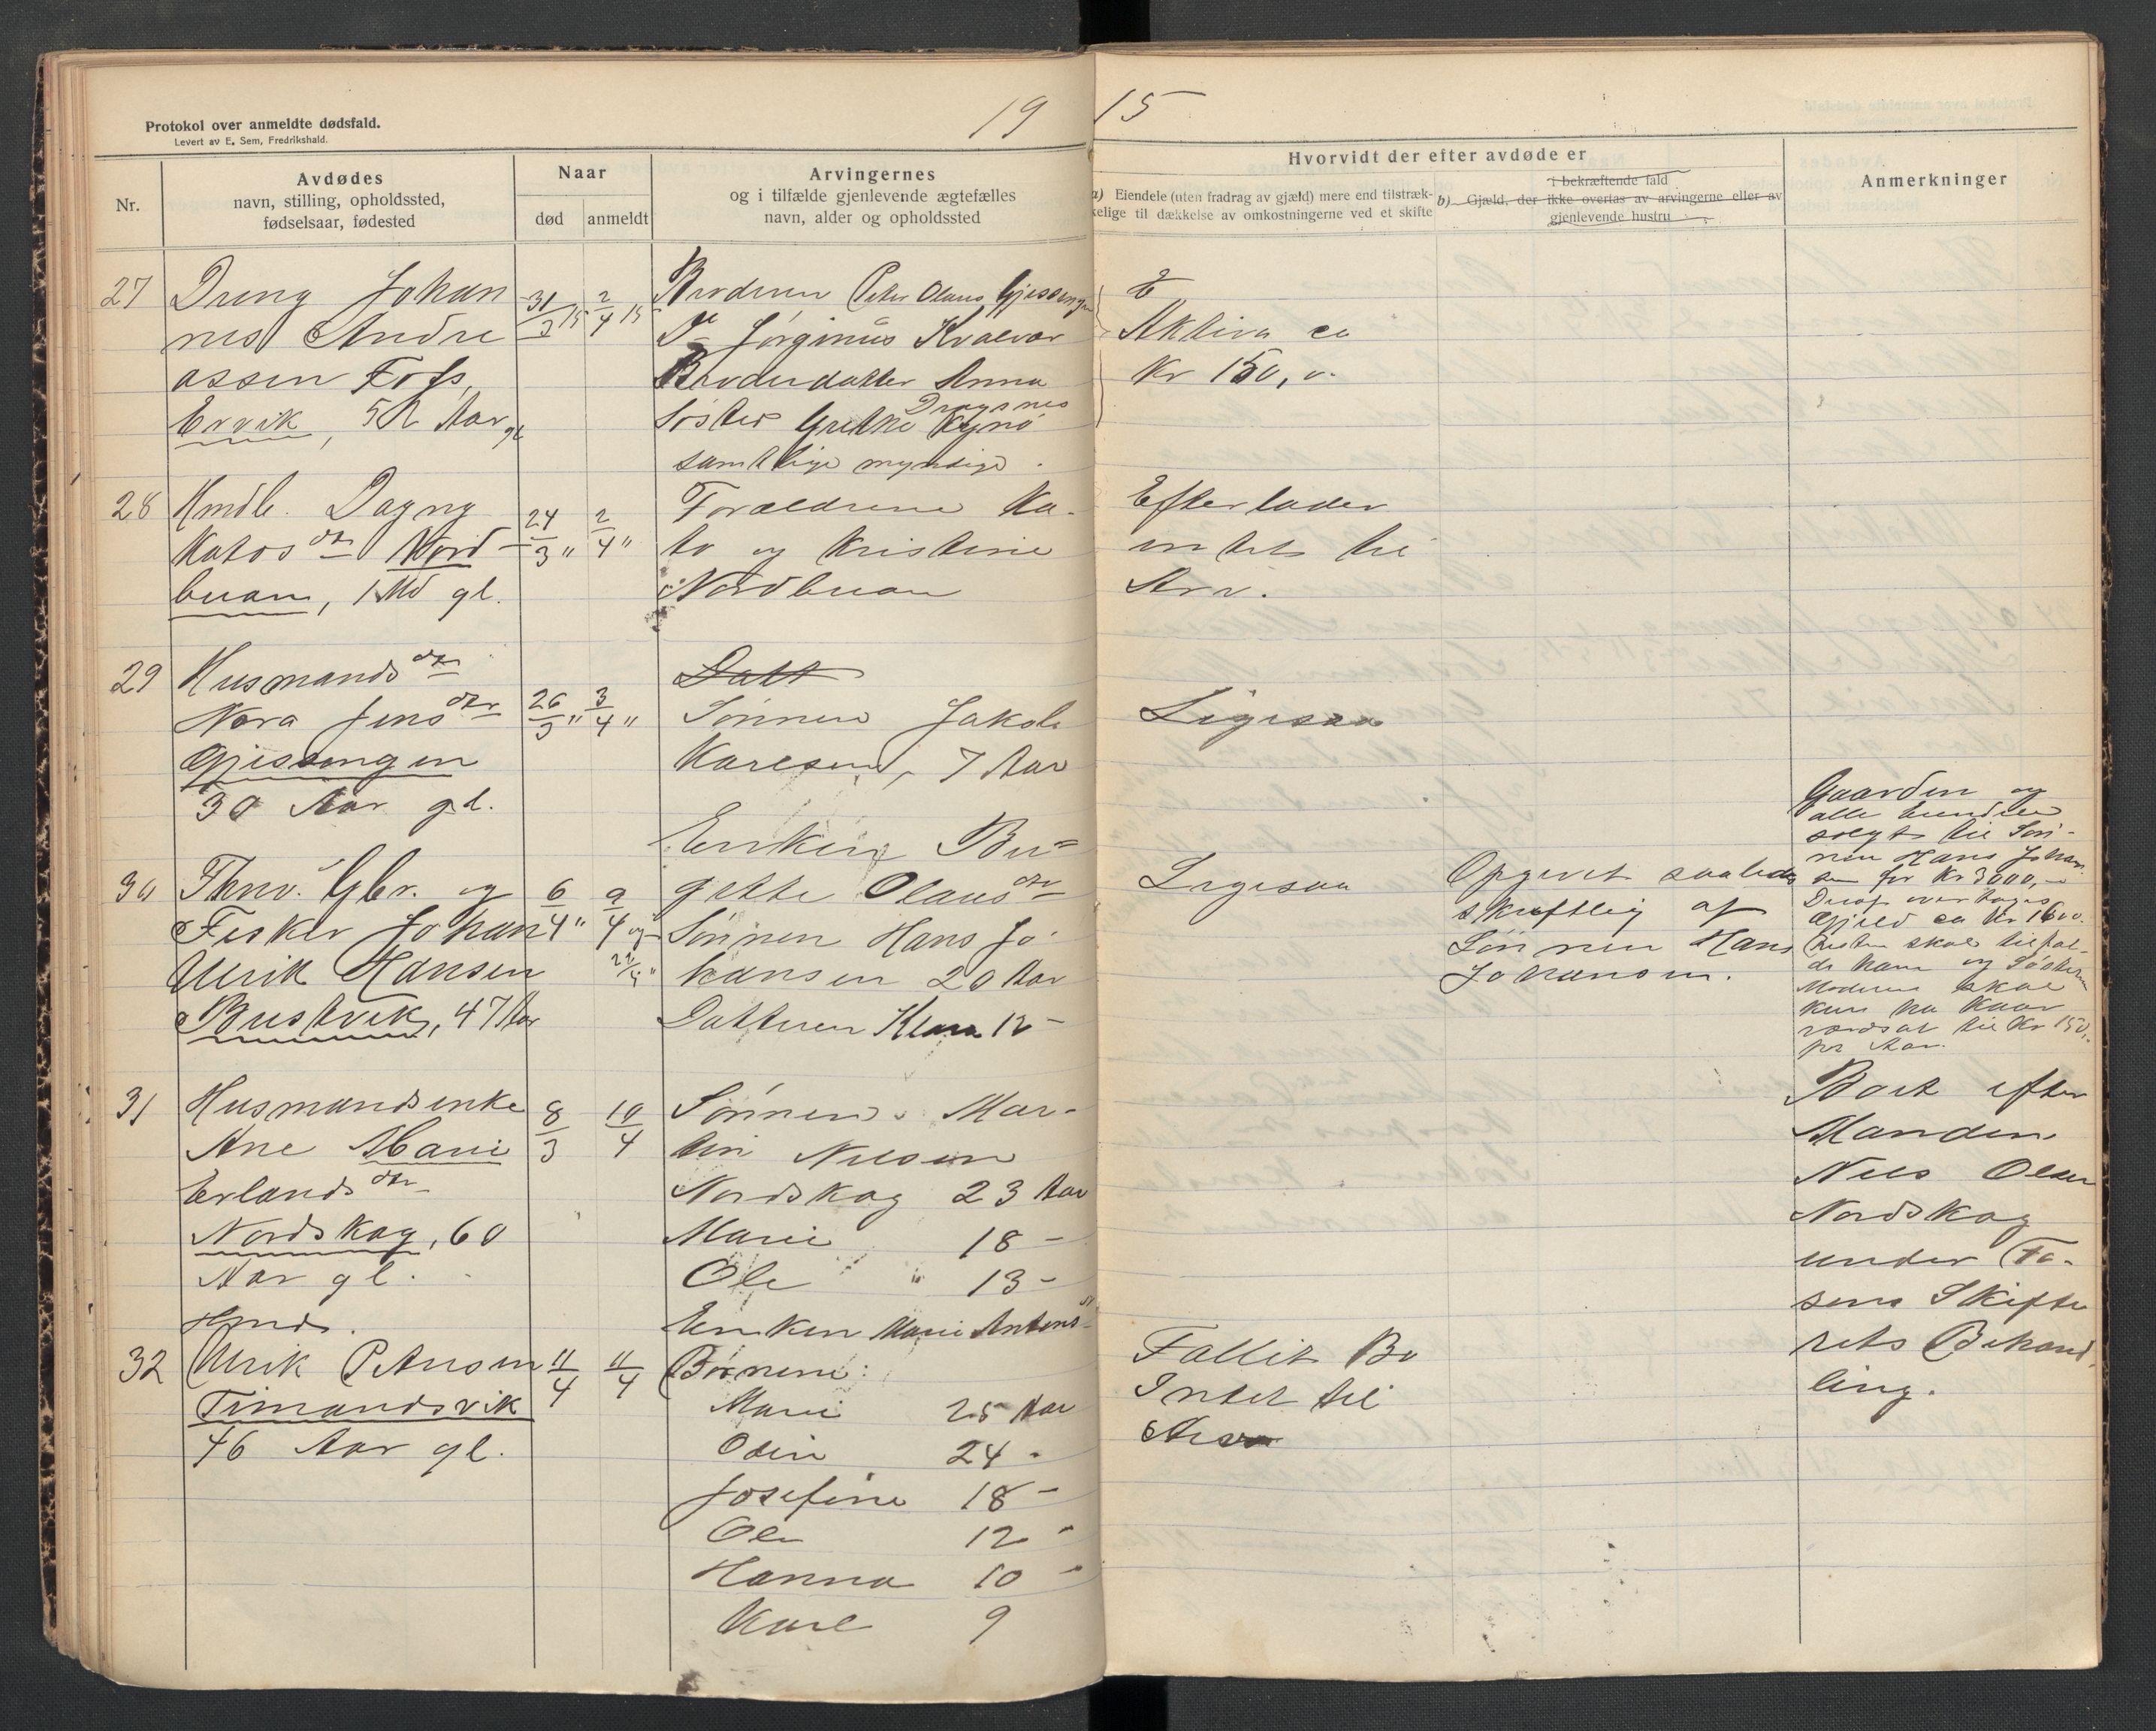 19 15
Protokol over anmeldte dødsfald.
Levert av E. Sem, Fredrikshald.
Nr.
Avdødes
navn, stilling, opholdssted,
fødselsaar, fødested
Naar
død
anmeldt
Arvingernes
og i tilfælde gjenlevende ægtefælles
navn, alder og opholdssted
Hvorvidt der efter avdøde er
a) Eiendele (uten fradrag av gjæld) mere end tilstræk-
kelige til dækkelse av omkostningerne ved et skifte
i bekræftende fald
b) Gjæld, der ikke overtas av arvingerne eller av
gjenlevende hustru
Anmerkninger
27
Dreng Johan
nes Andre
assen Fofs,
Ervik, 52 Aar
gl
31/3 15
2/4 15
Broderen Peter Olaus Gjessingen
Do Jørginus Kvalvær
Broderdatter Anna
Dragsnes
Søster Grethe Kynø
samtlige myndige.
Aktiva ca
Kr 150,0.
28
Hmdb. Dagny
Katos dtr Nord
buan, 1 Md gl.
24/3 "
2/4 "
Forældrene Ka-
to og Kristine
Nordbuan
Efterlader
intet til
Arv.
29
Husmands dtr
Nora Jens dtr
Gjessingen
30 Aar gl.
26/3 "
3/4 "
Datt
Sønnen Jakob
Karlsen, 7 Aar
Ligesaa
30
Thnv. Gbr. og
Fisker Johan
Ulrik Hansen
Bustvik, 47 Aar
6/4 "
9/4 og
Enken Bir-
gitte Olaus dtr
Sønnen Hans Jo-
hansen 20 Aar
Datteren Klara 12 -
Ligesaa
Opgivet saaledes
skriftlig af
Sønnen Hans
Johansen.
Gaarden og
solgt til Søn-
nen Hans Johan
sen for Kr 3000,-
Deraf overtages
Gjeld ca Kr 1600.
Resten skal tilfal-
de ham og Søsteren
Moderen skal
kun ha Kaar
værdsat til Kr 150,-
pr Aar.
31
Husmandsenke
Ane Marie
Erlands dtr
Nordskag, 60
Aar gl.
8/3
10/4
Sønnen Mar-
tin Nilsen
Nordskag 23 Aar
Marie 18 -
Ole " 13 -
Boet efter
Manden
Nils Olsen
Nordskag
under Fo-
sens Skifte
rets Behand
ling.
32
Hmd.
Ulrik Petersen
Timandsvik
46 Aar gl.
11/4
11/4
Enken Marie Antons dr
Børnene:
Marie 25 Aar
Odin 24 -
Josefine 18 -
Ole 12 -
Hanna 10 -
Karl 9
Fallit Bo
Intet til
Arv